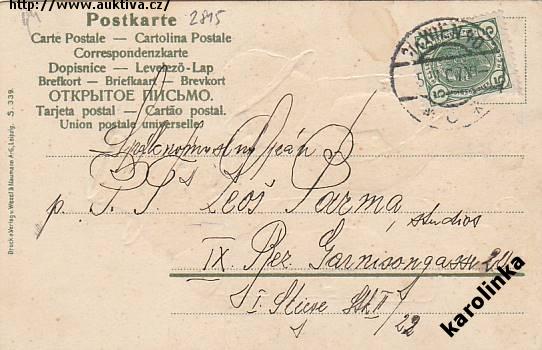 http://www.auktiva.cz/
2815
Postkarte
Carte Postale — Cartolina Postale
Correspondenzkarte
Dopisnice — Levelező-Lap
Brefkort — Briefkaart — Brevkort
ОТКРЫТОЕ ПИСЬМО.
Tarjeta postal — Cartão postal.
Union postale universelle.
WIEN
5 5
p. Leoš Parma,
studios
IX Bez Garnisongasse 20
I. Stiege
22
S. 339.
karolinka